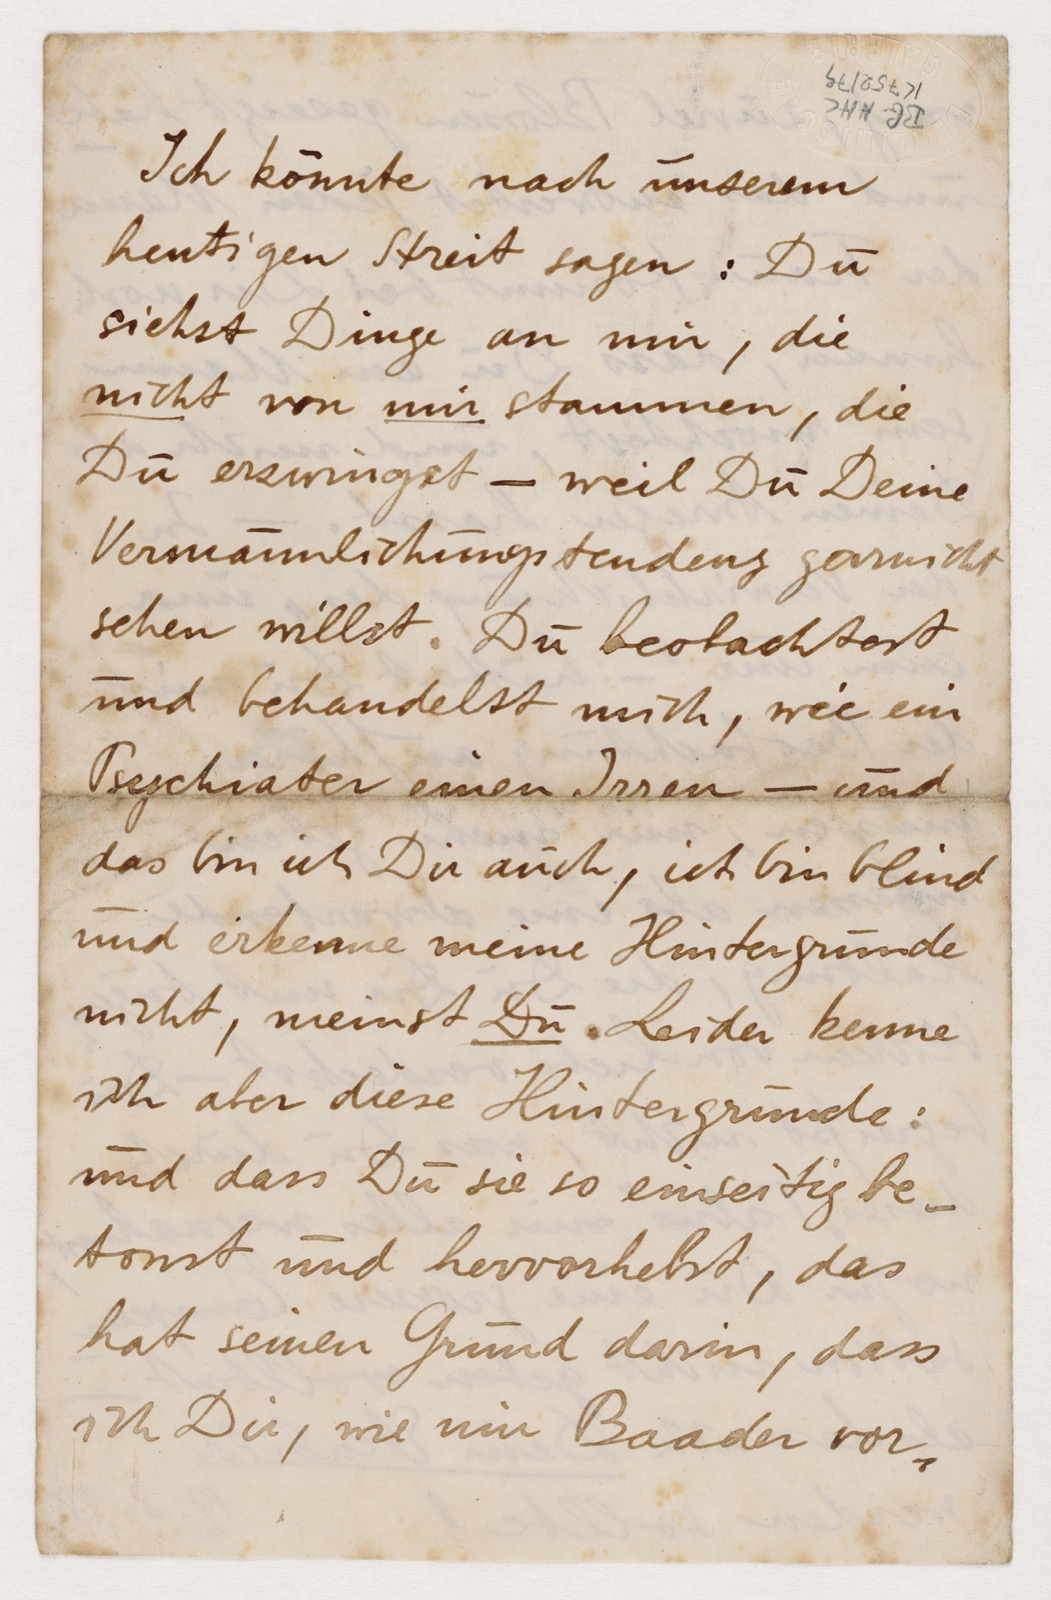 BG-AHC
K752/79
Ich könnte nach unserem
heutigen Streit sagen: Du
siehst Dinge an mir, die
nicht von mir stammen, die
Du erzwingst – weil Du Deine
Vermännlichungstendenz garnicht
sehen willst. Du beobachtest
und behandelst mich, wie ein
Psychiater einen Irren – und
das bin ich Dir auch, ich bin blind
und erkenne meine Hintergründe
nicht, meinst Du. Leider kenne
ich aber diese Hintergründe:
und dass Du sie so einseitig be-
tonst und hervorhebst, das
hat seinen Grund darin, dass
ich Dir, wie mir Baader vor-